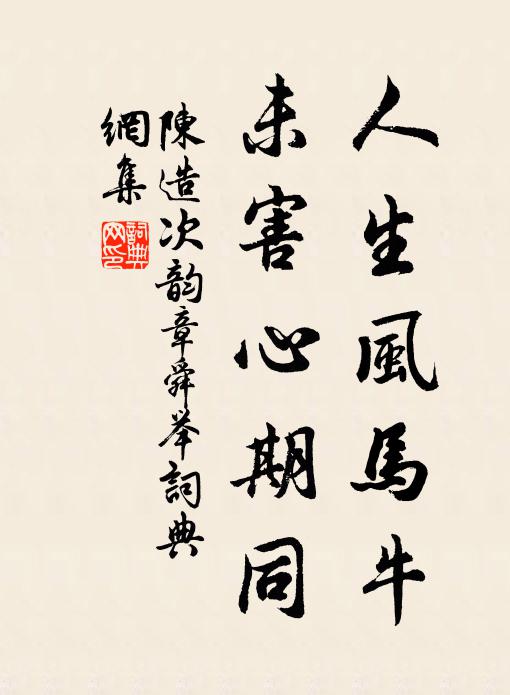 人生風馬牛
未害心期同
陳造次韵章舜举詞典
網集
詞典網印